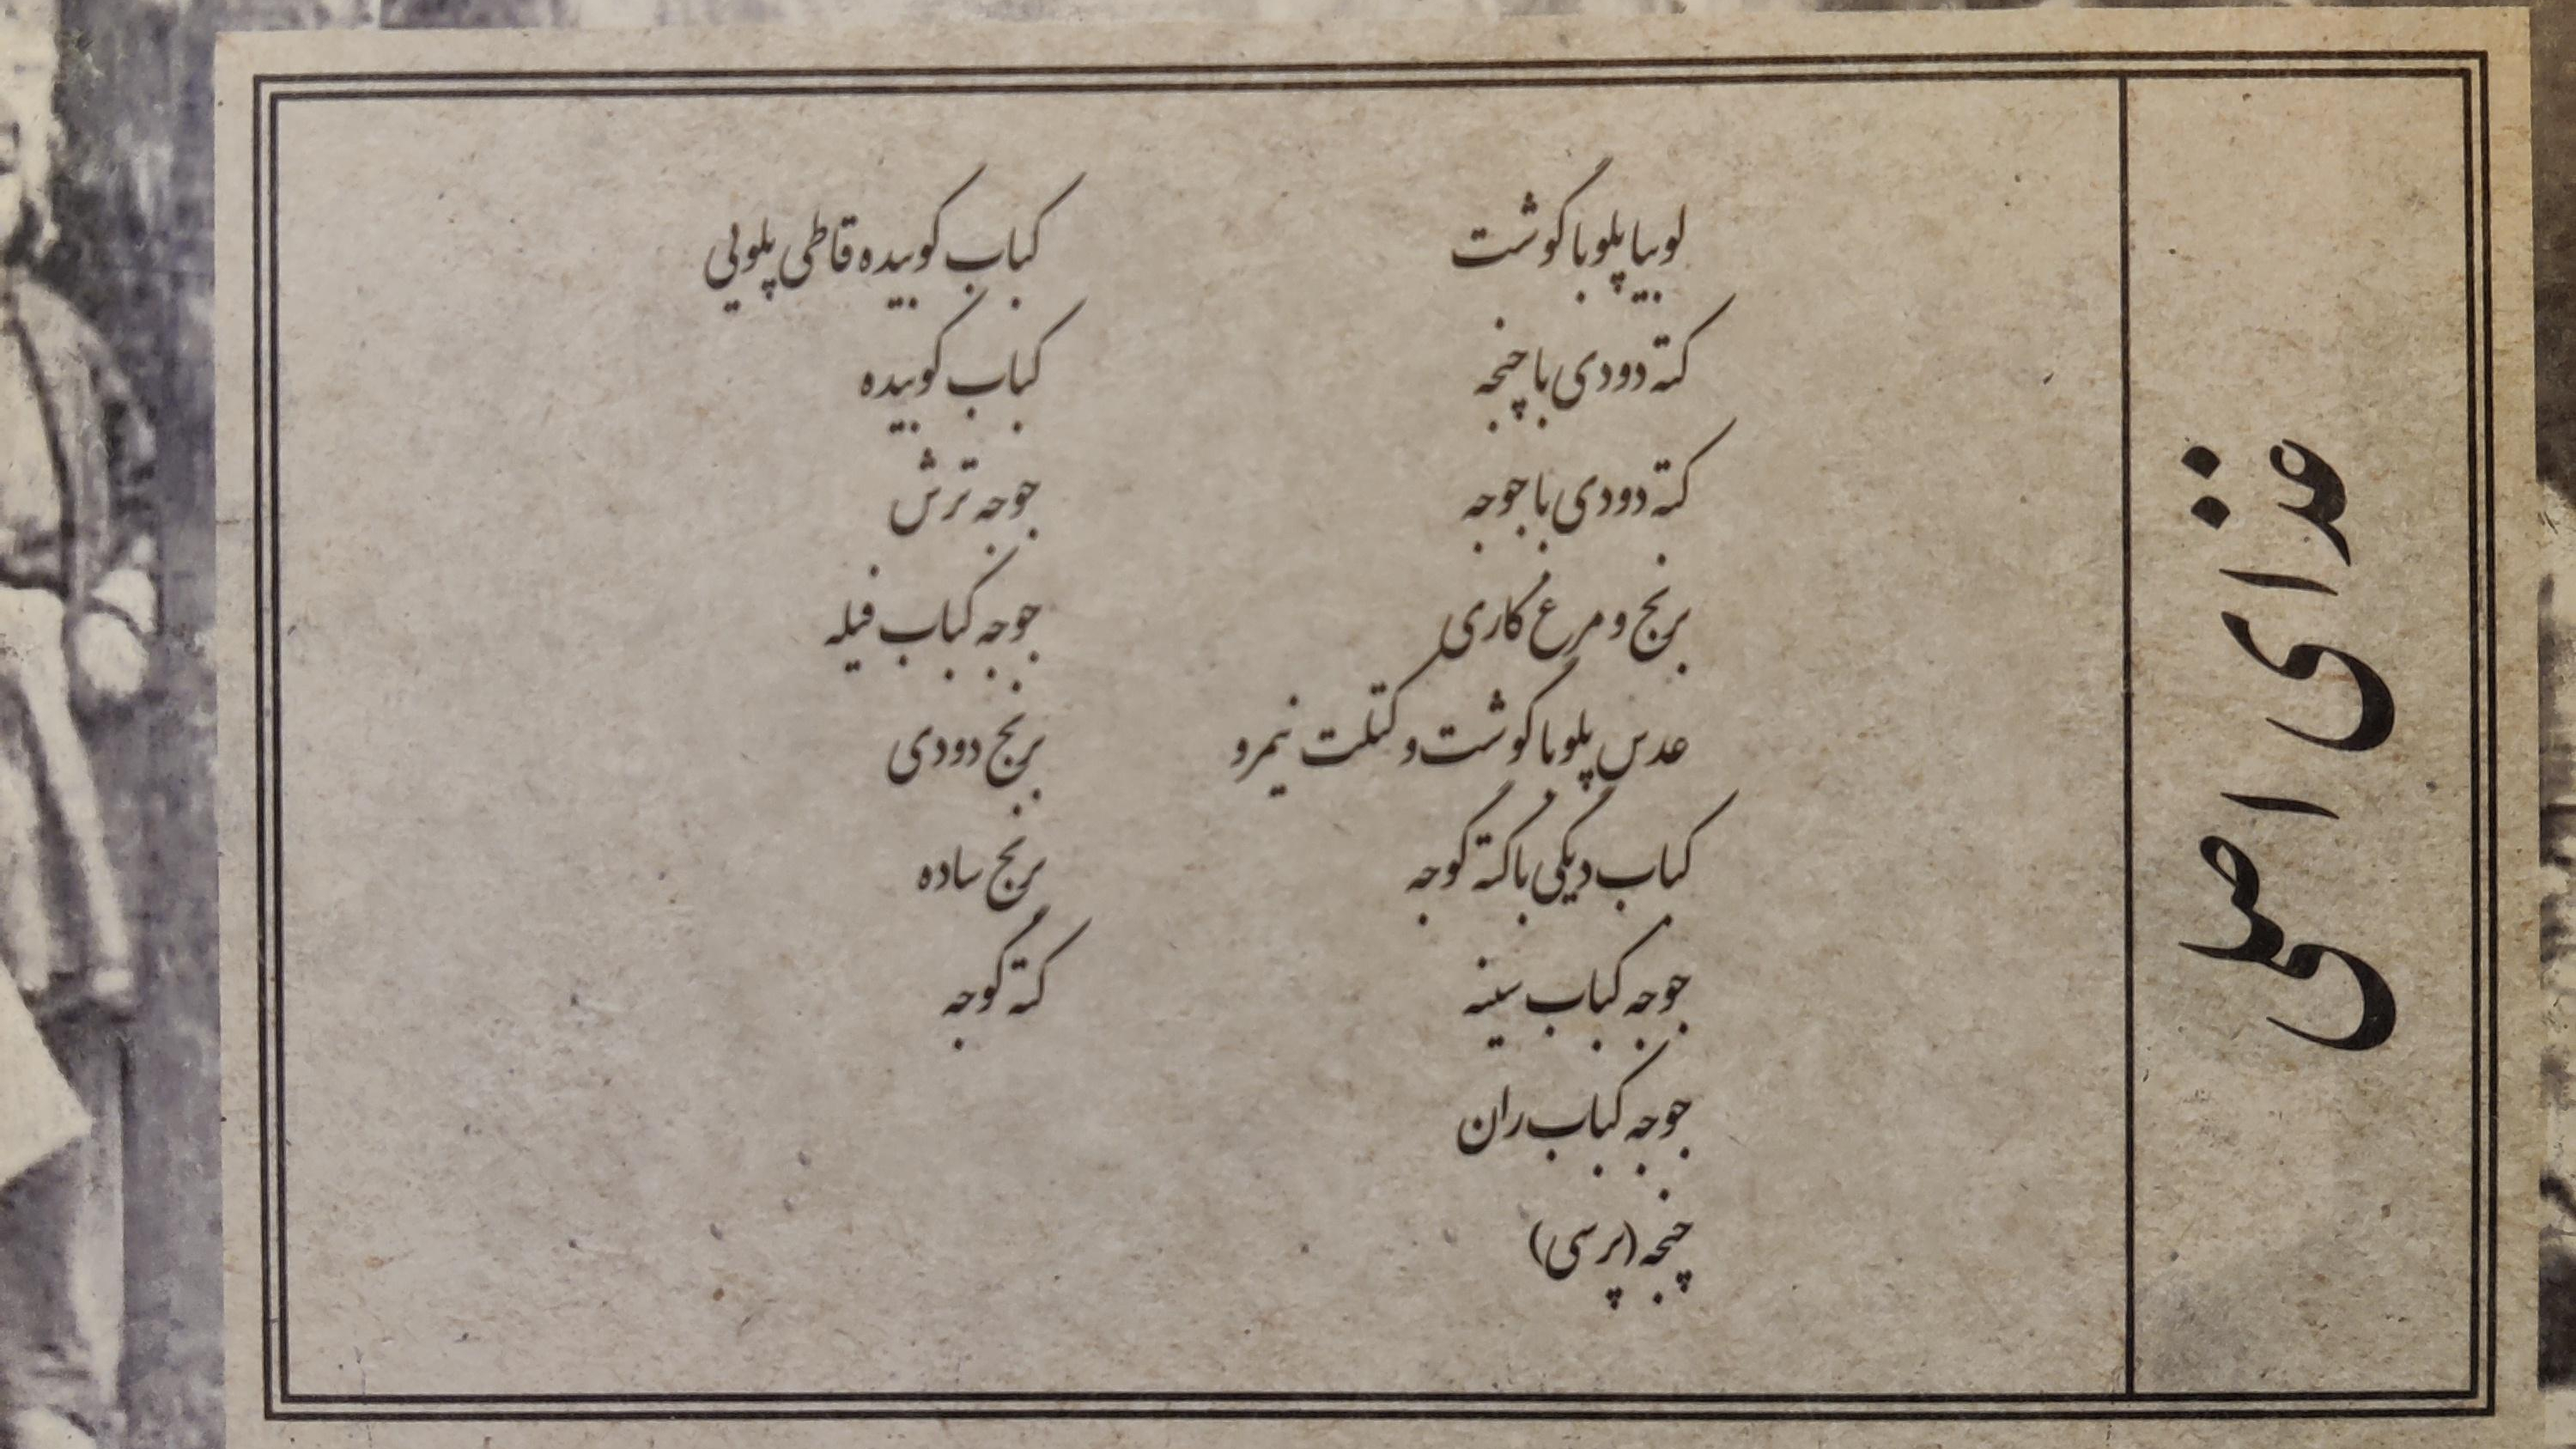 غذای اصلی
لوبیا پلو با گوشت
کته دودی با چنجه
کته دودی با جوجه
برنج و مرغ کاری
عدس پلو با گوشت و کتلت نیمرو
کباب دیگی با کته گوجه
جوجه کباب سینه
جوجه کباب ران
چنجه (پرسی)
کباب کوبیده قاطی پلویی
کباب کوبیده
جوجه ترش
جوجه کباب فیله
برنج دودی
برنج ساده
کته گوجه